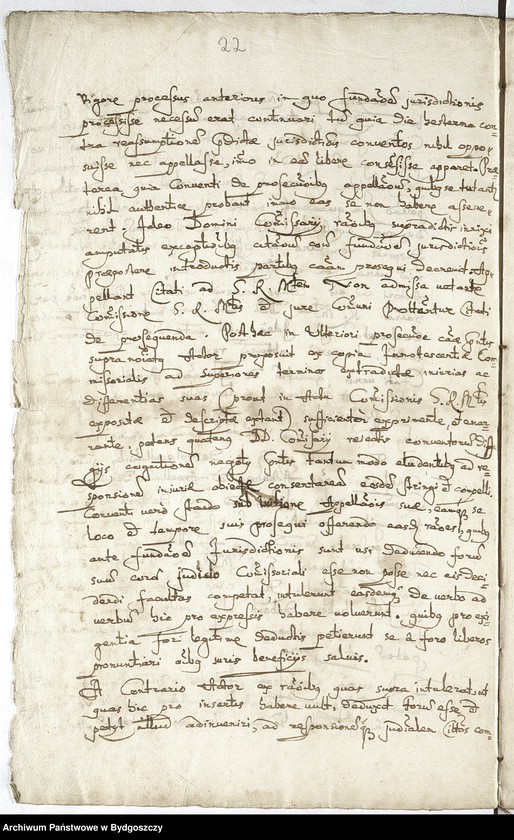 22
Vigore processus anterioris in quo fundatae jurisdictionis
processisse necessum erat continuari tum quia die hesterna con-
tra reassumptionem praedictae jurisdictionis conventos nihil oppo-
suisse nec appellasse, imo in eam libere consensisse apparet. Prae-
terea, quia Conventi de prosecutionibus appellationum, quibus se tutant
nihil authentice probant, immo eas se non habere asseve-
rent. Ideo Domini Commissarii rationibus supradictis innixi
amputatis exceptionibus citatorum contra fundationem jurisdictionis
praepostere introductis partibus causam prosequi decreverunt. Ap-
pellant Citati ad S. R. Mtem Non admissa vetante
Commissione S. R. Mtis et jure Comuni Protestantur Citati
de prosequenda. Post hac in Ulteriori prosecutione causae
supra Actor proposuit ex copia Innotescentiae Com-
missorialis ad Superiores terminos extraditae iniurias ac
differentias suas (prout in Actu Comissionis S. R. Mtis
expositae et descriptae extant) sufficienter exprimente, et enar-
rante: petens quatenus DD. Comissarii rejectis conventorum
cognitionem negotii tantummodo eludentibus ad re-
sponsionem iniuriis obiectis eosdem stringi et compelli.
Conventi vero stando sub Appellationis suae, eamque se
loco et tempore suis prosequi offerendo easdem rationes, quibus
ante fundationem Jurisdictionis sunt usi deducendo forum
suum coram judicio Comissoriali esse non posse nec eis deci-
dendi facultas competat, intulerunt easdemque de verbo ad
verbum hic pro expressis habere voluerunt. quibus pro exi-
gentia fori legitime deductis petierunt se a foro liberos
pronuntiari aliis juris beneficiis salvis.
A Contrario Actor ex rationibus quas supra intulerat et
quas hic pro insertis habere vult, deduxit forum esse et
petiit illud adinveniri, ad responsionemque judicialem Citatos com-
Archiwum Państwowe w Bydgoszczy